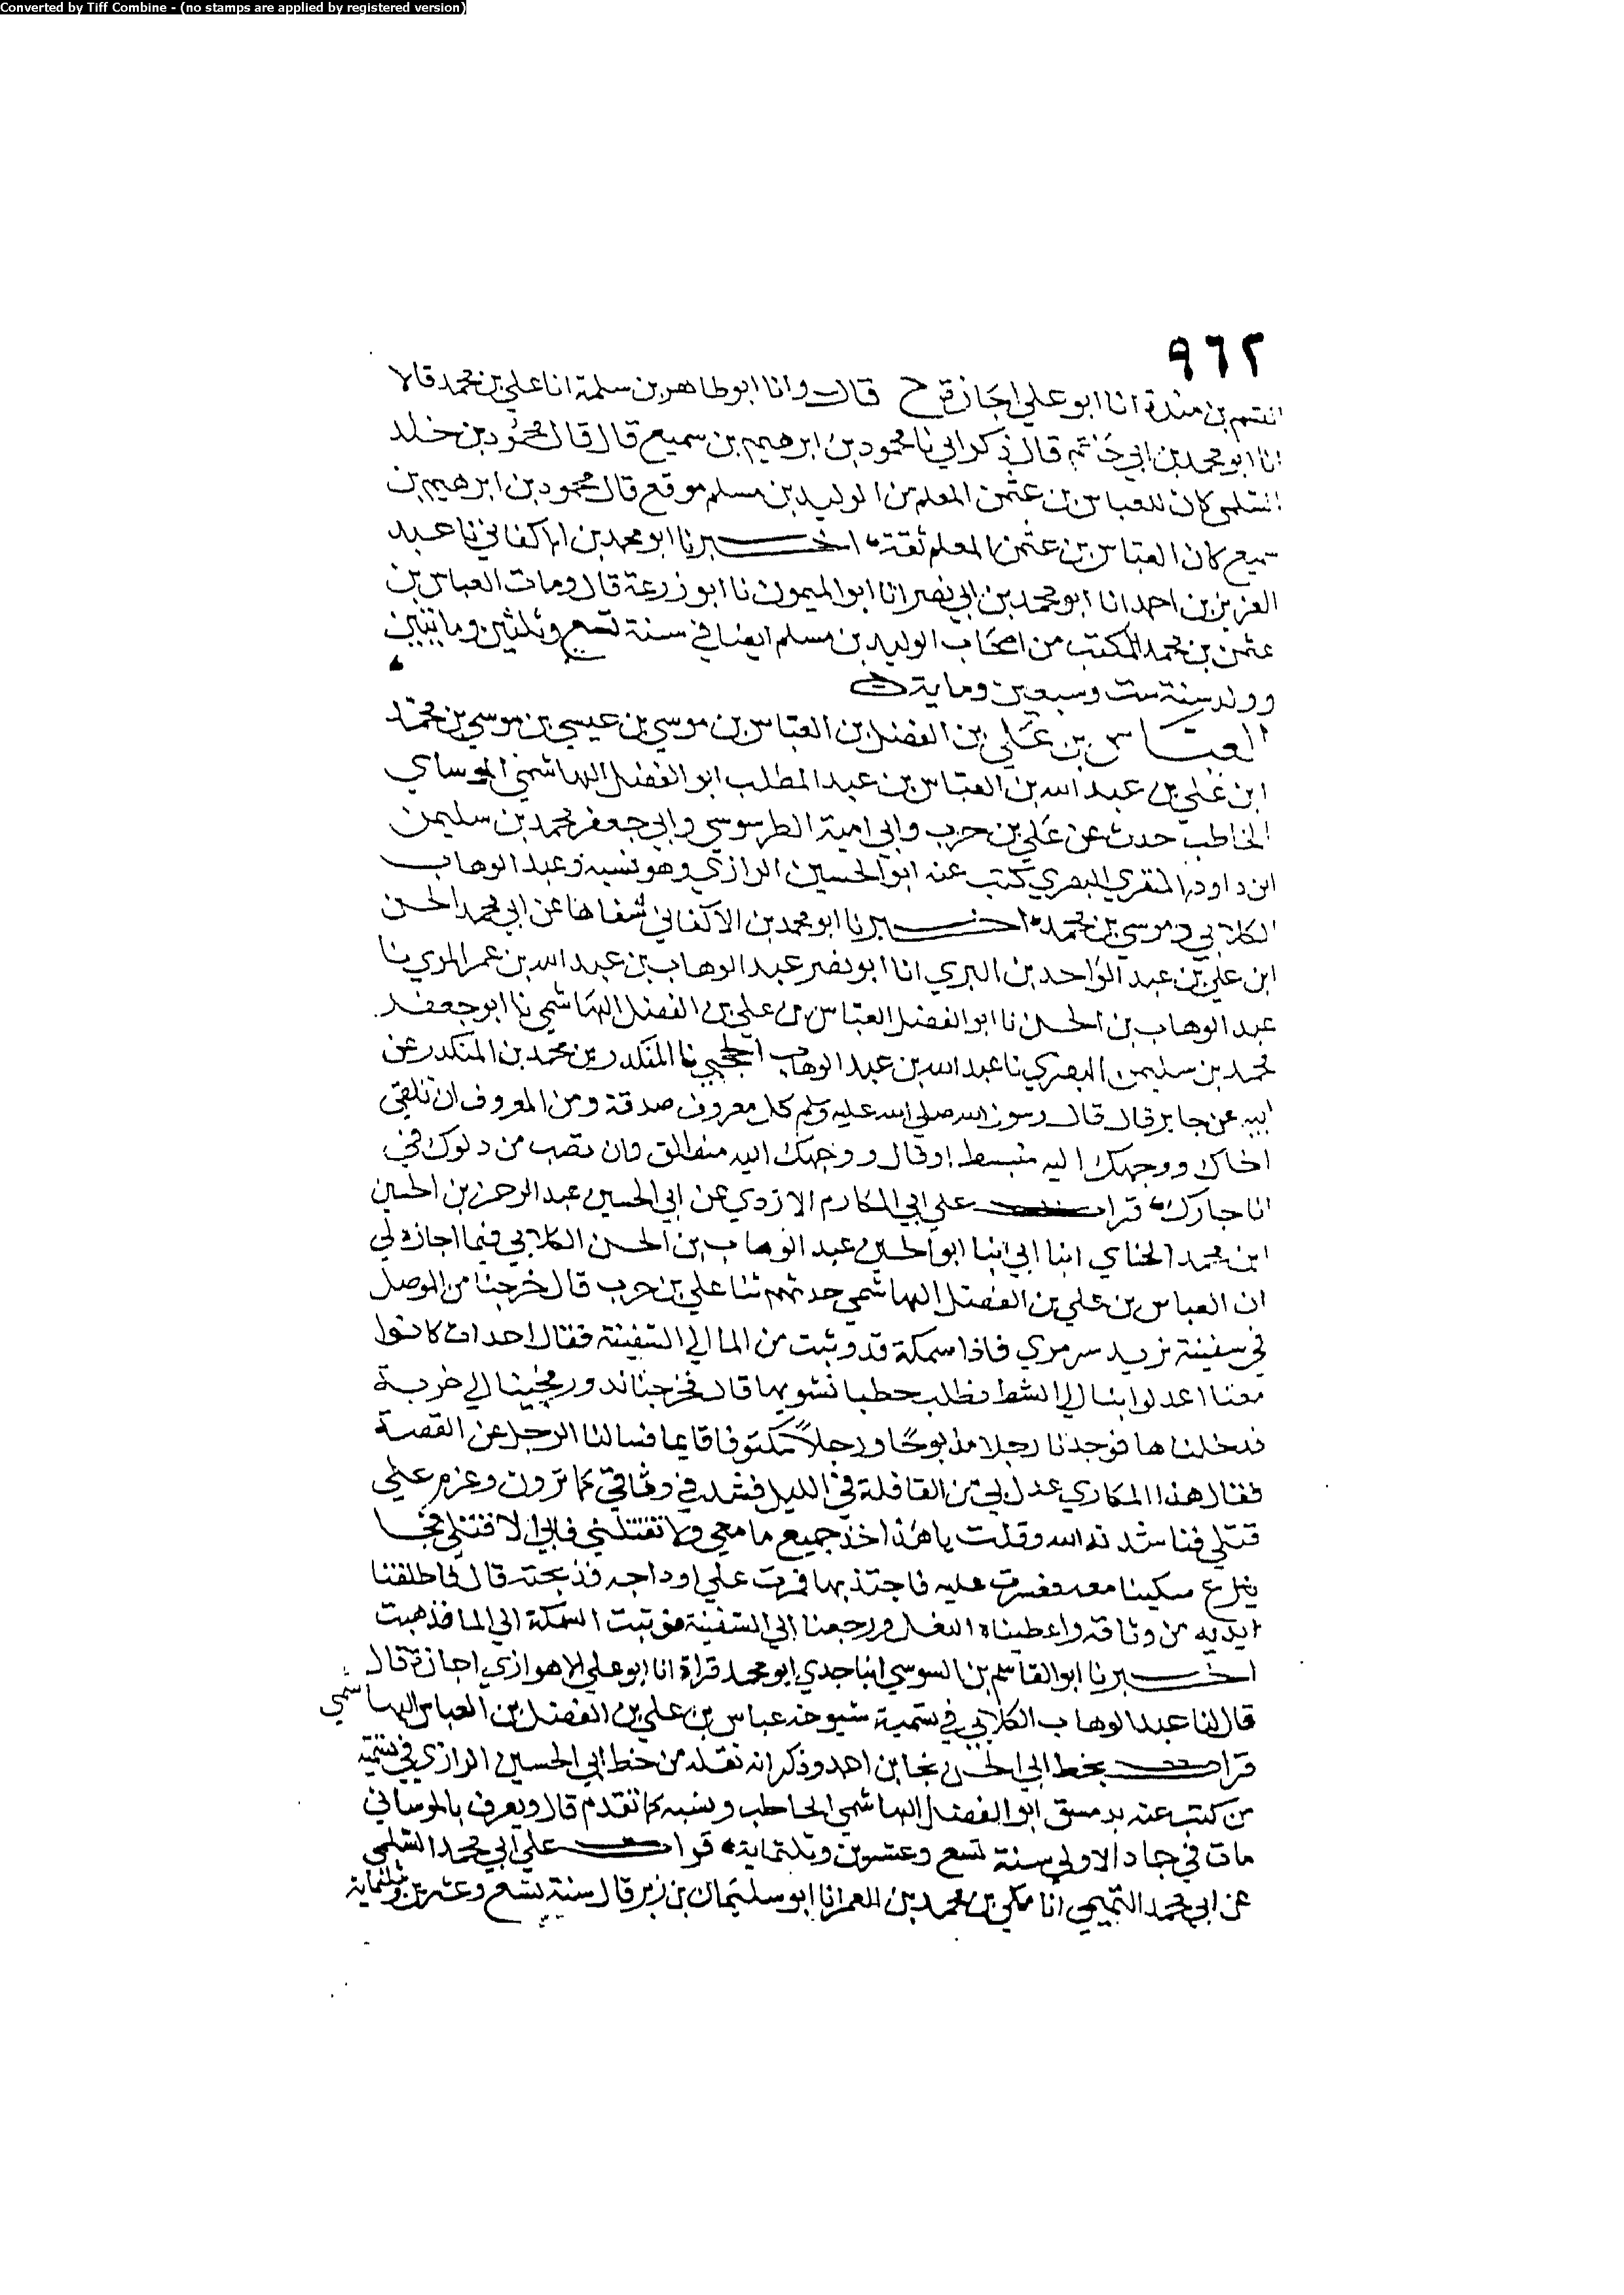 Converted by Tiff Combine - (no stamps are applied by registered version)
٩٦٢
القسم بن مندة انا ابو علي اجازة ح قال وانا ابو طاهر بن سلمة انا علي بن محمد قالا
انا ابو محمد بن ابي حاتم قال ذكر ابي نا محمود بن ابرهيم بن سميع قال قال محمود بن خلد
السلمي كان للعباس بن عثمن المعلم من الوليد بن مسلم موقع قال محمود بن ابرهيم بن
سميع كان العباس بن عثمن المعلم ثقة اخبرنا ابو محمد بن الاكفاني نا عبد
العزيز بن احمد انا ابو محمد بن ابي نصر انا ابو الميمون نا ابو زرعة قال ومات العباس بن
عثمن بن محمد المكتب من اصحاب الوليد بن مسلم ايضا في سنة تسع وثلثين ومائتين
وولد سنة ست وسبعين وماية
العباس بن علي بن الفضل بن العباس بن موسي بن عيسي بن موسي بن محمد
ابن علي بن عبد الله بن العباس بن عبد المطلب ابو الفضل الهاشمي الموساي
الخاطب حدث عن علي بن حرب وابي امية الطرسوسي وابي جعفر محمد بن سليمن
ابن داود المنقري البصري كتب عنه ابو الحسين الرازي وهو نسبه وعبد الوهاب
الكلابي و موسي بن محمد اخبرنا ابو محمد بن الاكفاني شفاها عن ابي محمد الحسن
ابن علي بن عبد الواحد بن البري انا ابو نصر عبد الوهاب بن عبد الله بن عمر المري نا
عبد الوهاب بن الحسن نا ابو الفضل العباس بن علي بن الفضل الهاشمي نا ابو جعفر
محمد بن سليمن البصري نا عبد الله بن عبد الوهاب الحجبي نا المنكدر بن محمد بن المنكدر عن
ابيه عن جابر قال قال رسول الله صلي الله عليه وسلم كل معروف صدقة ومن المعروف ان تلقي
اخاك ووجهك اليه منبسط او قال ووجهك اليه منطلق وان تصب من دلوك في
انا جارك قرات علي ابي المكارم الازدي عن ابي الحسين عبد الرحمن بن الحسين
ابن محمد الحناي انبا ابي انبا ابو الحسين عبد الوهاب بن الحسن الكلابي فيما اجازه لي
ان العباس بن علي بن الفضل الهاشمي حدثهم ثنا علي بن حرب قال خرجنا من الموصل
في سفينة نريد سر مري فاذا سمكة قد وثبت من الما الي السفينة فقال احداث كانوا
معنا اعدلوا بنا الي الشط نطلب حطبا نشويها قال فخرجنا ندور فجينا الي خربة
فدخلناها فوجدنا رجلا مذبوحا ورجلا مكتوفا قايما فسالنا الرجل عن القصة
فقال هذا المكاري عدل بي من القافلة في الليل فشد في وثاقي كما ترون وعزم علي
قتلي فناشدته الله وقلت يا هذا خذ جميع ما معي ولا تقتلني فابي الا قتلي فجا
ينزع سكينا معه فعسرت عليه فاجتذبها فمرت علي اوداجه فذبحته قال فاطلقنا
ايديه من وثاقه واعطيناه البغل ورجعنا الي السفينة فوثبت السمكة الي الما فذهبت
اخبرنا ابو القاسم بن السوسي انبا جدي ابو محمد قراة انا ابو علي الاهوازي اجازة قال
قال لنا عبد الوهاب الكلابي في تسمية شيوخه عباس بن علي بن الفضل بن العباس الهاشمي
قرات بخط ابي الحسن نجا بن احمد وذكر انه نقله من خط ابي الحسين الرازي في تسمية
من كتب عنه بدمشق ابو الفضل الهاشمي الخاطب ونسبه كما تقدم قال ويعرف بالموساني
مات في جماد الاولي سنة تسع وعشرين وثلثماية قرات علي ابي محمد السلمي
عن ابي محمد التميمي انا مكي بن محمد بن الغمر انا ابو سليمان بن زبر قال سنة تسع وعشرين وثلثماية